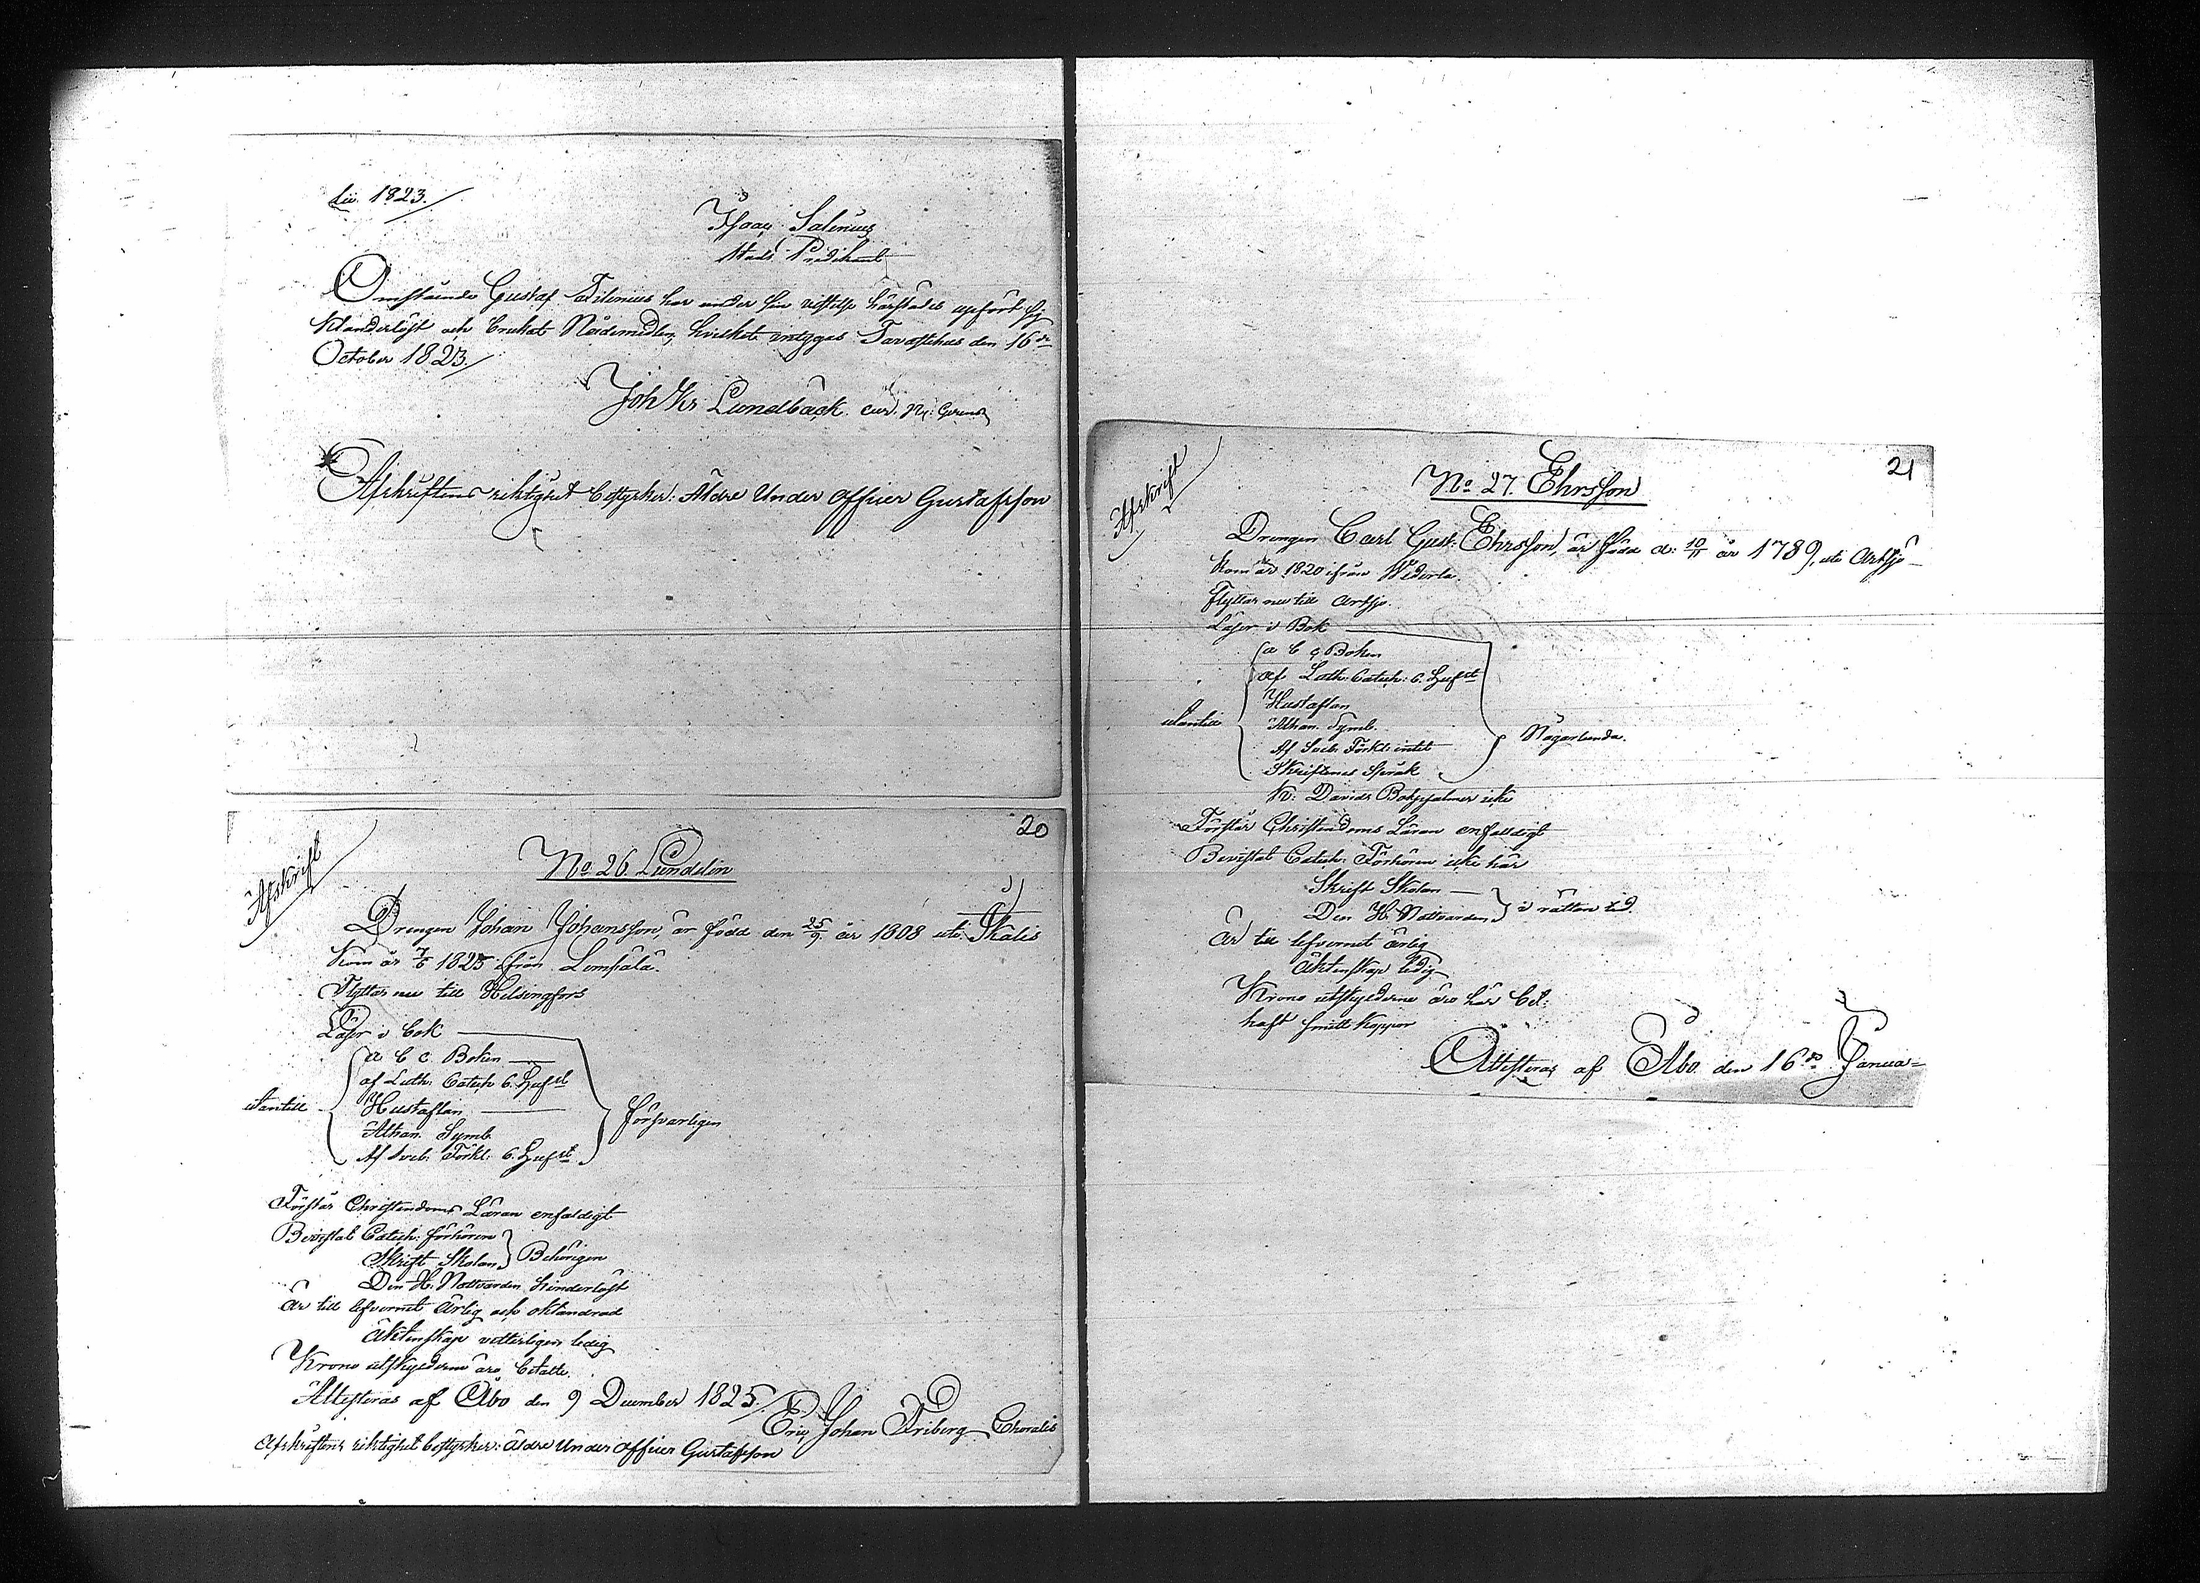 lii 1823.
Isaac Salenius
Stads Predikant
Omstående Gustaf Filenius har under sin vistelse härstädes upfört sig
klanderlöst och brukat Nådemedlen, hvilket intygas Tavastehus den 16de
October 1823.
Joh Kr Lundbäck. cur.
Afskriftens riktighet bestyrker: Äldre Under officer Gustafsson
20
Afskrift
No 26. Lundelin
Drengen Johan Johansson, är född den 25/9 år 1808 uti Skalis
Kom år 7/6 1825 ifrån Lempälä.
Flyttar nu till Helsingfors
Läser i bok
a b c Boken
af Luth: Catech 6. Hufst
utantill
Hustaflan
förswarligen
Athan. Symb.
Af Sveb: Förkl: 6. Hufst.
Förstår Christendoms Läran enfaldigt
Bevistat Catech: förhören
Skrift Skolan
Behörigen
Den H. Nattvarden hinderlöst
Är till lefvernet ärlig och oklandrad
äktenskap vetterligen ledig
Krono utskylderne äro betalte.
Attesteras af Åbo den 9 December 1825.
Eric Johan Friberg Choralis
Afskriftens riktighet bestyrker: äldre Under officer Gustafsson
21
Afskrift
No 27. Ehrsson
Drengen Carl Gust: Ehrsson, är född d: 10/11 år 1789, uti Artsjö
Kom år 1820 ifrån Wederla.
Flyttar nu till Artsjö.
Läser i Bok
a b c Boken
af Luth: Catech: 6. Hufst
Hustaflan
utantill
Athan. Symb.
Någorlunda.
Af Sveb. Förkl: intet
Skriftenes Språk
K. Davids Botpsalmer icke
Förstår Christendoms Läran enfaldigt
Bevistat Catech: Förhören icke här
Skrift Skolan
Den H. Nattvarden
i rättan tid.
Är till lefvernet ärlig
äktenskap ledig
Krono utskylderne äro här bet:
haft smitt koppor
Attesteras af Åbo den 16de Janua=